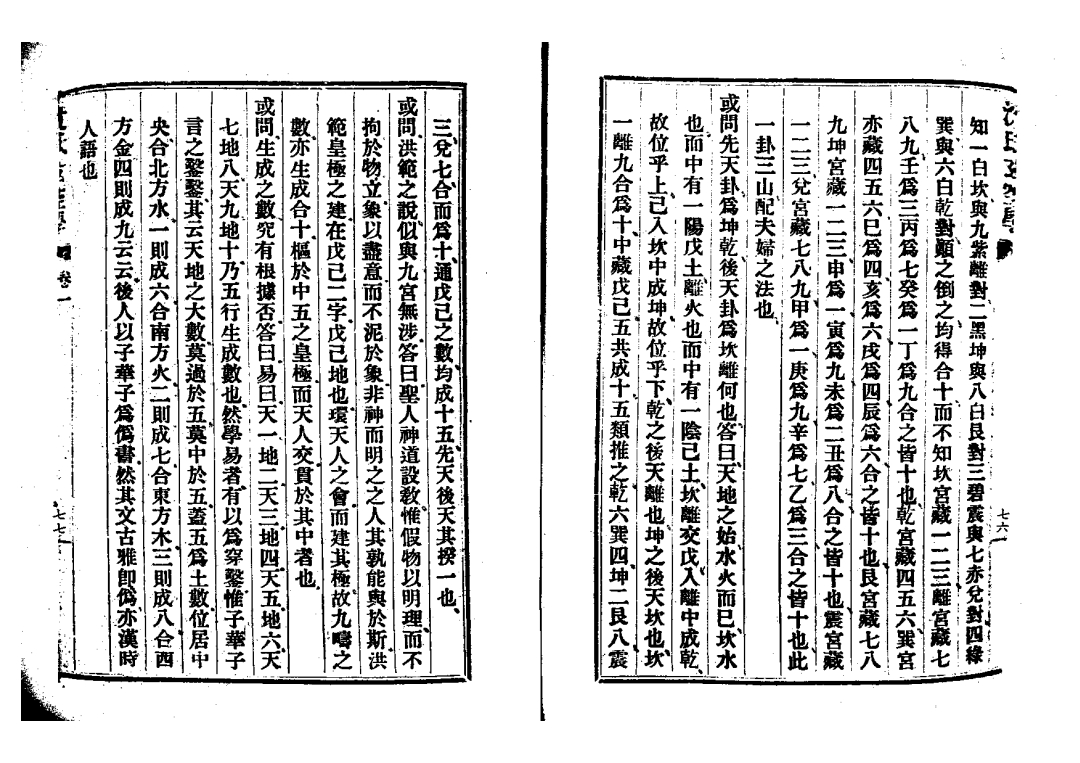 知一白坎與九紫離對二黑坤與八白艮對三碧震與七赤兌對四綠
巽與六白乾對顚之倒之均得合十而不知坎宮藏一二三離宮藏七
八九壬爲三丙爲七癸爲一丁爲九合之皆十也乾宮藏四五六巽宮
亦藏四五六巳爲四亥爲六戌爲四辰爲六合之皆十也艮宮藏七八
九坤宮藏一二三申爲一寅爲九未爲二丑爲八合之皆十也震宮藏
一二三兌宮藏七八九甲爲一庚爲九辛爲七乙爲三合之皆十也此
一卦三山配夫婦之法也
或問先天卦爲坤乾後天卦爲坎離何也答曰天地之始水火而已坎水
也而中有一陽戊土離火也而中有一陰己土坎離交戊入離中成乾
故位乎上己入坎中成坤故位乎下乾之後天離也坤之後天坎也坎
一離九合爲十中藏戊己五共成十五類推之乾六巽四坤二艮八震
七六
三兌七合而爲十通戊己之數均成十五先天後天其揆一也
或問洪範之說似與九宮無涉答曰聖人神道設敎惟假物以明理而不
拘於物立象以盡意而不泥於象非神而明之之人其孰能與於斯洪
範皇極之建在戊己二字戊己地也環天人之會而建其極故九疇之
數亦生成合十樞於中五之皇極而天人交貫於其中者也
或問生成之數究有根據否答曰易曰天一地二天三地四天五地六天
七地八天九地十乃五行生成數也然學易者有以爲穿鑿惟子華子
言之鑿鑿其云天地之大數莫過於五莫中於五蓋五爲土數位居中
央合北方水一則成六合南方火二則成七合東方木三則成八合西
方金四則成九云云後人以子華子爲僞書然其文古雅卽僞亦漢時
人語也
卷一
七七